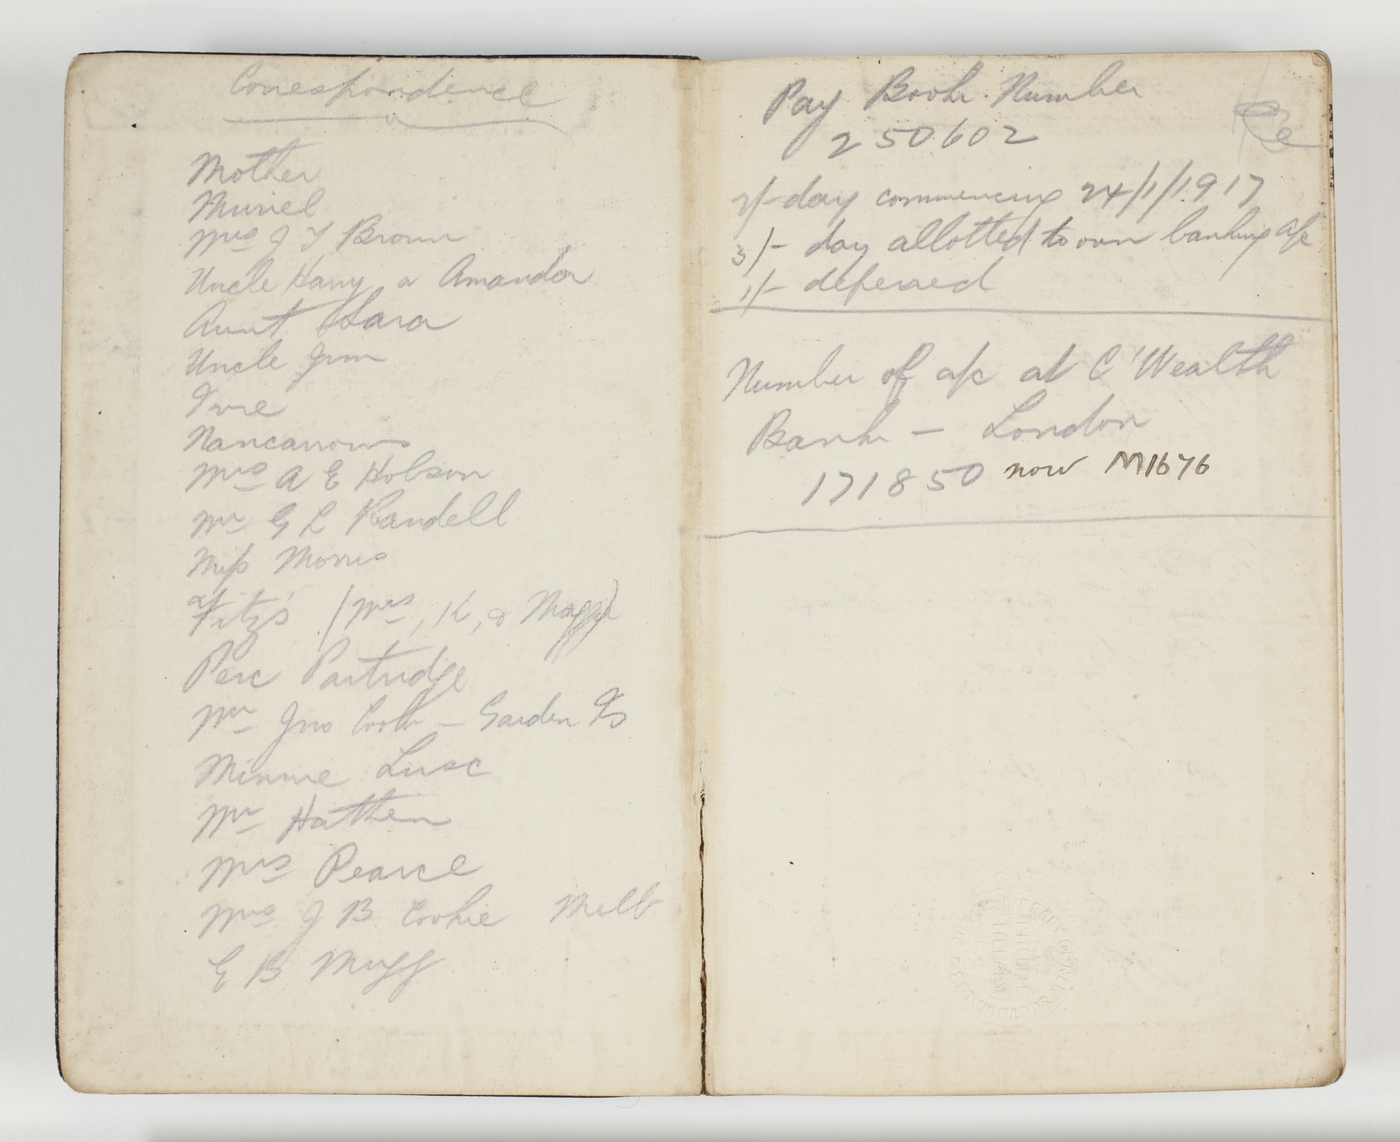 Correspondence
Mother
Muriel
Mrs J Y Brown
Uncle Harry & Amanda
Aunt Sara
Uncle Jim
Ivie
Nancarrows
Mrs A E Hobson
Mr G L Randell
Miss Morris
Fitz's (Mrs, K, & Maggie)
Perc Partridge
Mr Jno Cook – Garden Is
Minnie Lusc
Mr Hatten
Mrs Pearce
Mrs J B Cookie Melb
E B Mugg
Pay Book Number
250602
2/- day commencing 24/1/1917
3/- day allotted to own banking a/c
1/- deferred
Number of a/c at C'Wealth
Bank – London
171850 now M1676